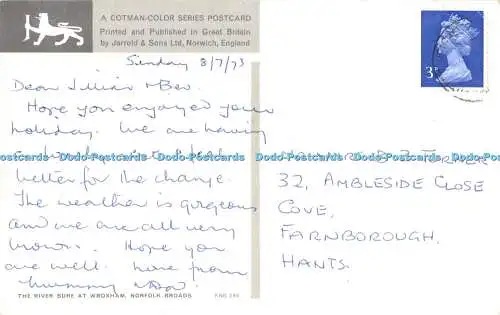 A COTMAN-COLOR SERIES POSTCARD
Printed and Published in Great Britain
by Jarrold & Sons Ltd, Norwich, England
Sunday 8/7/73
Dear Jillian & Bev.
Hope you enjoyed your
holiday. We are having
better for the change.
The weather is gorgeous
and we are all very
brown. Hope you
are well. Love from
Mummy
THE RIVER BURE AT WROXHAM, NORFOLK BROADS
3P
Postcards Dodo-Postcards Dodo-Postcards Dodo-Postcards Dodo-Postcards Dodo-Postcards
32, AMBLESIDE CLOSE
COVE,
FARNBOROUGH,
HANTS.